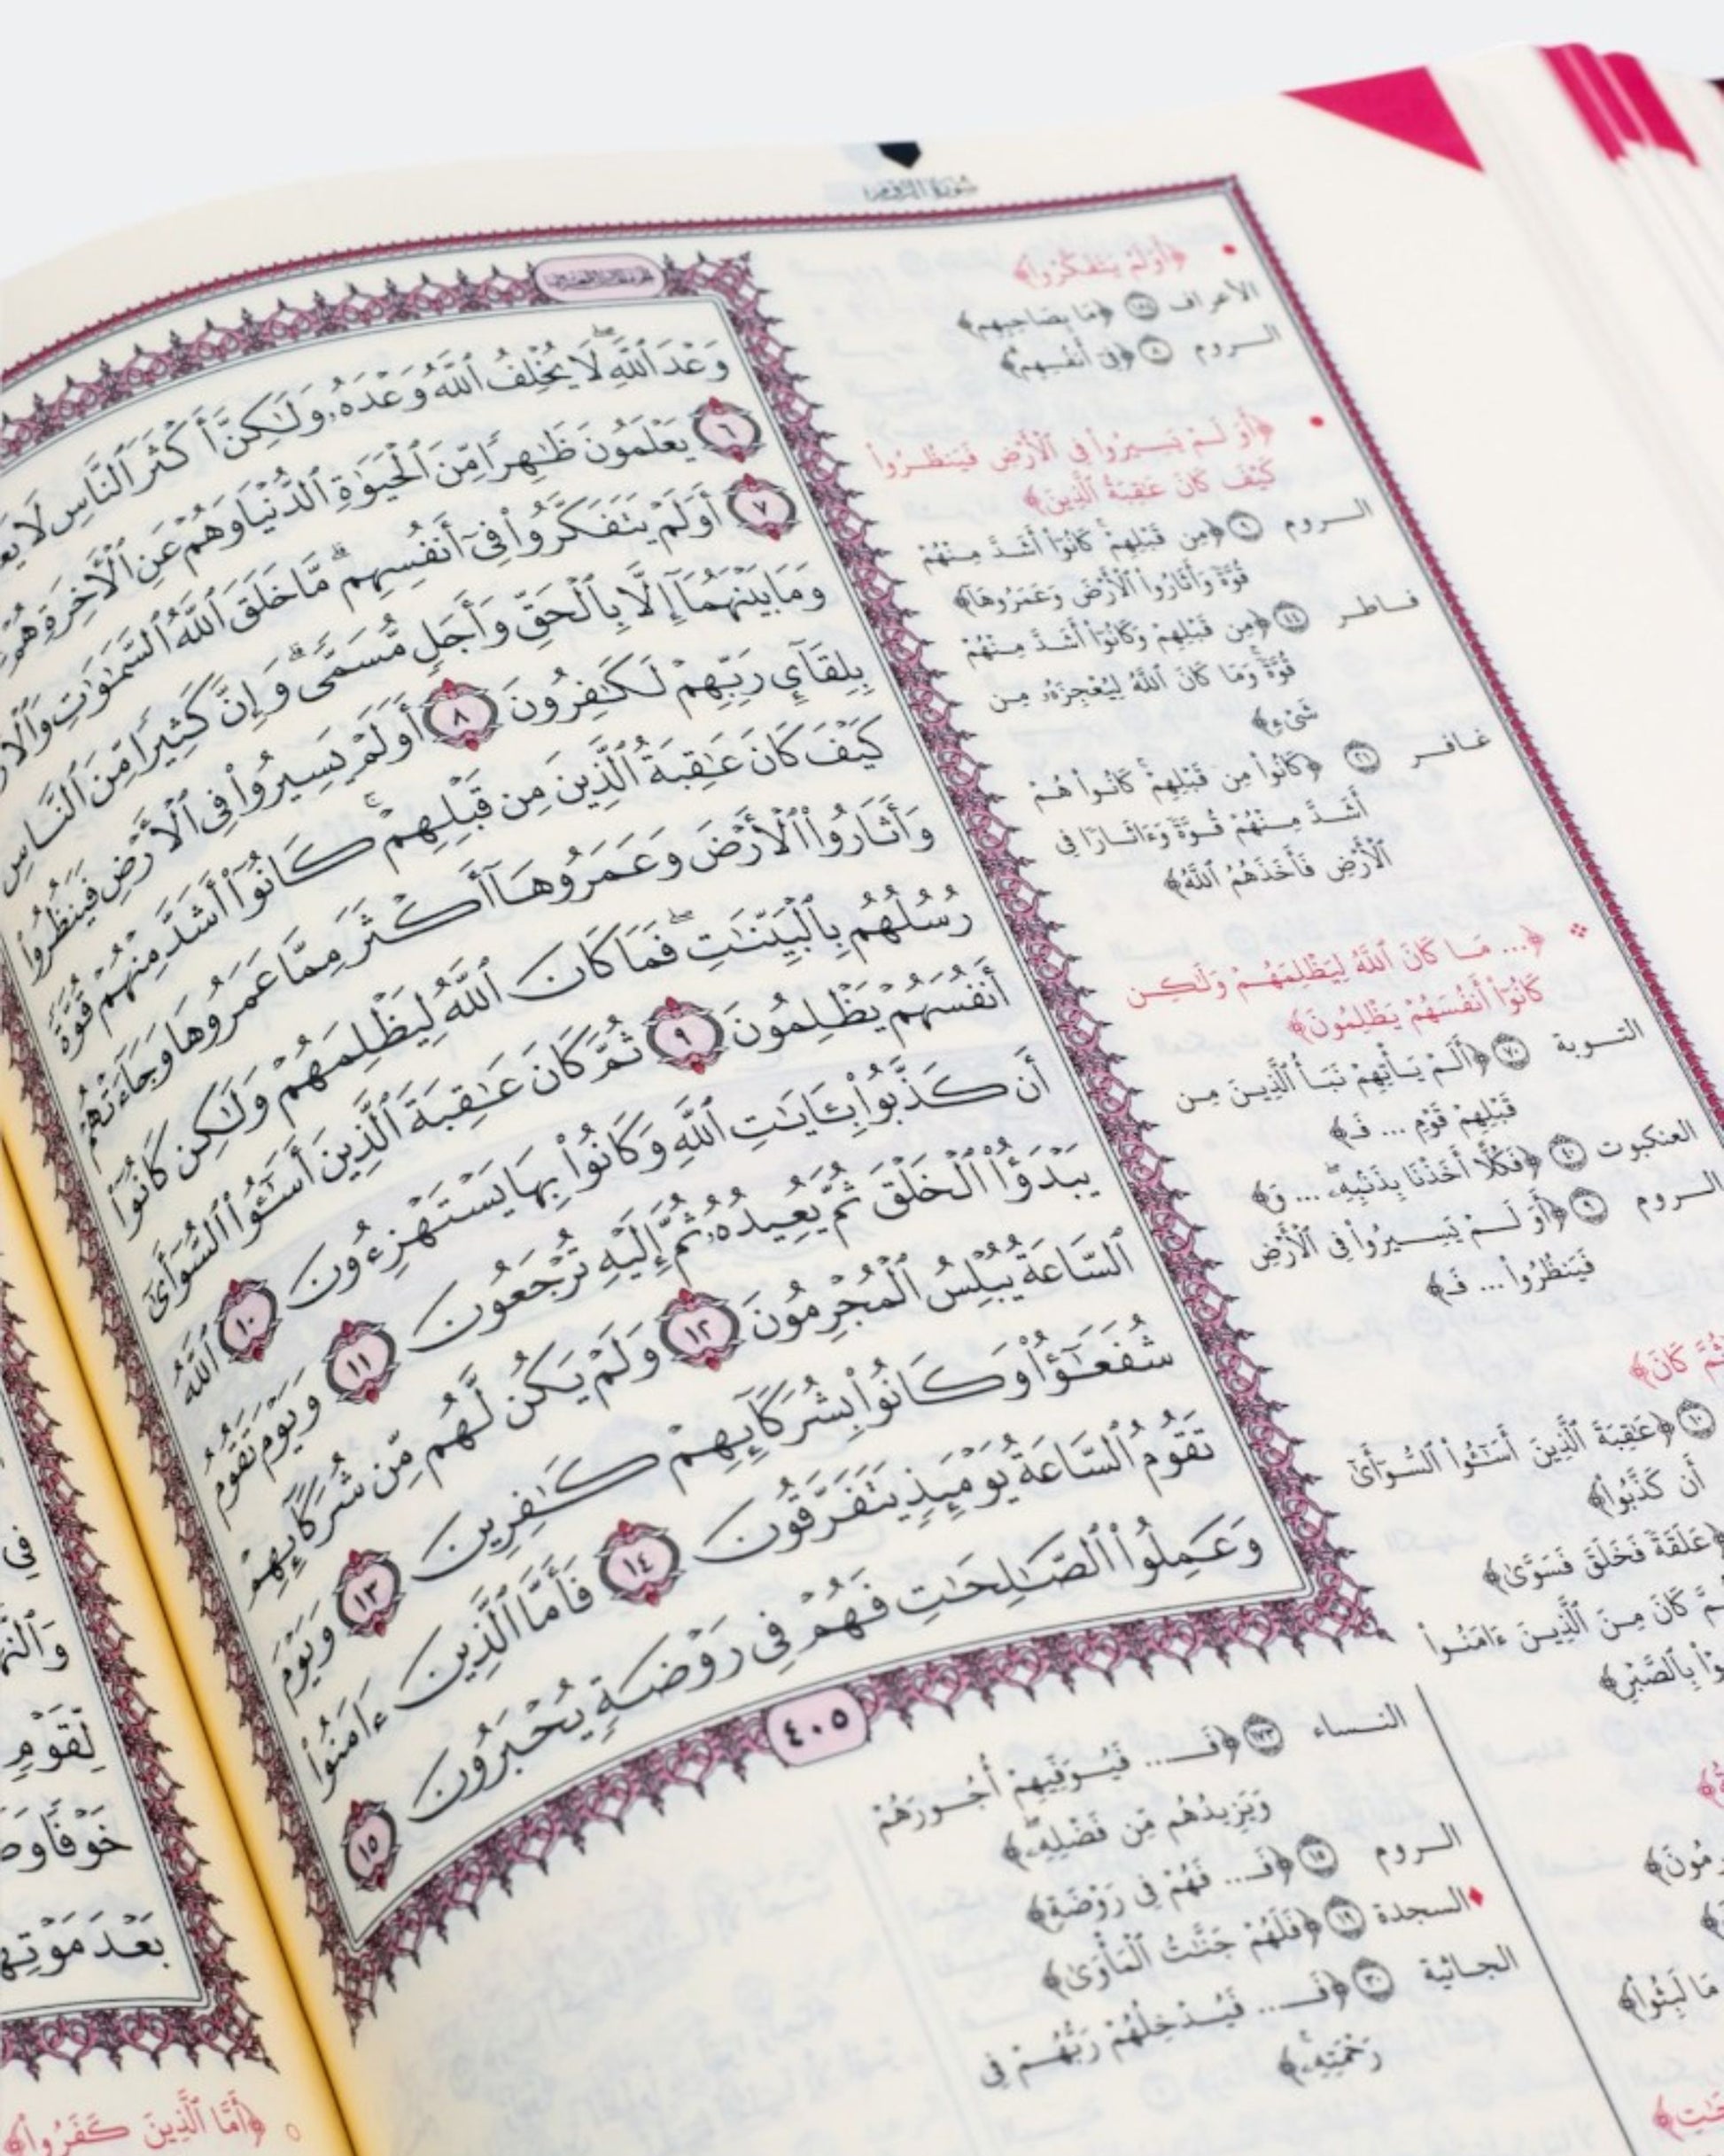 سورة الروم
وَعْدَ ٱللَّهِ ۖ لَا يُخْلِفُ ٱللَّهُ وَعْدَهُۥ وَلَٰكِنَّ أَكْثَرَ ٱلنَّاسِ لَا
٦ يَعْلَمُونَ ظَٰهِرًا مِّنَ ٱلْحَيَوٰةِ ٱلدُّنْيَا وَهُمْ عَنِ ٱلْأَخِرَةِ هُمْ
٧ أَوَلَمْ يَتَفَكَّرُوا۟ فِىٓ أَنفُسِهِم ۗ مَّا خَلَقَ ٱللَّهُ ٱلسَّمَٰوَٰتِ
وَمَا بَيْنَهُمَآ إِلَّا بِٱلْحَقِّ وَأَجَلٍ مُّسَمًّى ۗ وَإِنَّ كَثِيرًا مِّنَ ٱلنَّاسِ
بِلِقَآئِ رَبِّهِمْ لَكَٰفِرُونَ ٨ أَوَلَمْ يَسِيرُوا۟ فِى ٱلْأَرْضِ فَيَنظُرُوا۟
كَيْفَ كَانَ عَٰقِبَةُ ٱلَّذِينَ مِن قَبْلِهِمْ ۚ كَانُوٓا۟ أَشَدَّ مِنْهُمْ قُوَّةً
وَأَثَارُوا۟ ٱلْأَرْضَ وَعَمَرُوهَآ أَكْثَرَ مِمَّا عَمَرُوهَا وَجَآءَتْهُمْ
رُسُلُهُم بِٱلْبَيِّنَٰتِ ۖ فَمَا كَانَ ٱللَّهُ لِيَظْلِمَهُمْ وَلَٰكِن كَانُوٓا۟
أَنفُسَهُمْ يَظْلِمُونَ ٩ ثُمَّ كَانَ عَٰقِبَةَ ٱلَّذِينَ أَسَٰٓـُٔوا۟ ٱلسُّوٓأَىٰٓ
أَن كَذَّبُوا۟ بِـَٔايَٰتِ ٱللَّهِ وَكَانُوا۟ بِهَا يَسْتَهْزِءُونَ ١٠ ٱللَّهُ
يَبْدَؤُا۟ ٱلْخَلْقَ ثُمَّ يُعِيدُهُۥ ثُمَّ إِلَيْهِ تُرْجَعُونَ ١١ وَيَوْمَ تَقُومُ
ٱلسَّاعَةُ يُبْلِسُ ٱلْمُجْرِمُونَ ١٢ وَلَمْ يَكُن لَّهُم مِّن شُرَكَآئِهِمْ
شُفَعَٰٓؤُا۟ وَكَانُوا۟ بِشُرَكَآئِهِمْ كَٰفِرِينَ ١٣ وَيَوْمَ
تَقُومُ ٱلسَّاعَةُ يَوْمَئِذٍ يَتَفَرَّقُونَ ١٤ فَأَمَّا ٱلَّذِينَ ءَامَنُوا۟
وَعَمِلُوا۟ ٱلصَّٰلِحَٰتِ فَهُمْ فِى رَوْضَةٍ يُحْبَرُونَ ١٥
٤٠٥
﴿أَوَلَمْ يَتَفَكَّرُوا﴾
الأعراف ﴿مَا بِصَاحِبِهِم﴾
الروم ٨ ﴿فِىٓ أَنفُسِهِم﴾
﴿أَوَلَمْ يَسِيرُوا۟ فِى ٱلْأَرْضِ فَيَنظُرُوا۟
كَيْفَ كَانَ عَٰقِبَةُ ٱلَّذِينَ﴾
الروم ٩ ﴿مِن قَبْلِهِمْ ۚ كَانُوٓا۟ أَشَدَّ مِنْهُمْ
قُوَّةً وَأَثَارُوا۟ ٱلْأَرْضَ وَعَمَرُوهَآ﴾
فاطر ٤٤ ﴿مِن قَبْلِهِمْ وَكَانُوٓا۟ أَشَدَّ مِنْهُمْ
قُوَّةً ۚ وَمَا كَانَ ٱللَّهُ لِيُعْجِزَهُۥ مِن
شَىْءٍ﴾
غافر ٢١ ﴿كَانُوا۟ مِن قَبْلِهِمْ ۚ كَانُوا۟ هُمْ
أَشَدَّ مِنْهُمْ قُوَّةً وَءَاثَارًا فِى
ٱلْأَرْضِ فَأَخَذَهُمُ ٱللَّهُ﴾
﴿... مَا كَانَ ٱللَّهُ لِيَظْلِمَهُمْ وَلَٰكِن
كَانُوٓا۟ أَنفُسَهُمْ يَظْلِمُونَ﴾
التوبة ٧٠ ﴿أَلَمْ يَأْتِهِمْ نَبَأُ ٱلَّذِينَ مِن
قَبْلِهِمْ قَوْمِ ... فَـ﴾
العنكبوت ٤٠ ﴿فَكُلًّا أَخَذْنَا بِذَنۢبِهِۦ ۖ ... وَ﴾
الروم ٩ ﴿أَوَلَمْ يَسِيرُوا۟ فِى ٱلْأَرْضِ
فَيَنظُرُوا۟ ... فَـ﴾
ثُمَّ كَانَ﴾
١٠ ﴿عَٰقِبَةَ ٱلَّذِينَ أَسَٰٓـُٔوا۟ ٱلسُّوٓأَىٰٓ
أَن كَذَّبُوا۟﴾
﴿عَلَقَةً فَخَلَقَ فَسَوَّىٰ﴾
كَانَ مِنَ ٱلَّذِينَ ءَامَنُوا۟
بِٱلصَّبْرِ﴾
النساء ١٧٣ ﴿فَـ... فَيُوَفِّيهِمْ أُجُورَهُمْ
وَيَزِيدُهُم مِّن فَضْلِهِۦ ۖ﴾
الروم ١٥ ﴿فَـ... فَهُمْ فِى رَوْضَةٍ﴾
السجدة ١٩ ﴿فَلَهُمْ جَنَّٰتُ ٱلْمَأْوَىٰ﴾
الجاثية ٣٠ ﴿فَـ... فَيُدْخِلُهُمْ رَبُّهُمْ فِى
رَحْمَتِهِۦ ۚ﴾
مَا لَبِثُوا۟﴾
فِى
لِّقَوْمٍ
خَوْفًا
بَعْدَ مَوْتِهَا
﴿أَمَّا ٱلَّذِينَ كَفَرُوا۟﴾